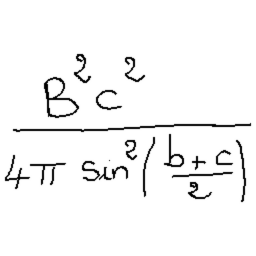 B² c²
4π sin² ( b + c / 2 )